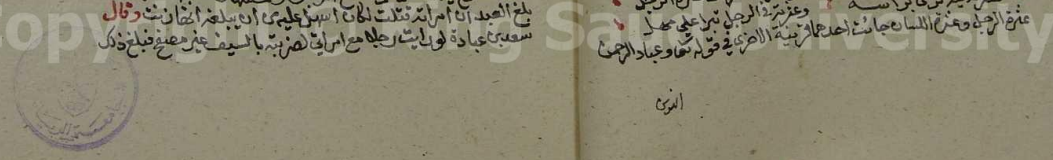 وعثرة الرجل تبرا على مهل
عثرة الرجل وعثرة اللسان جائت احدهما قرينة الاخرى في قوله تعا وعباد الرحمن
بلغ العبد ان امراته قتلت لكان اسهل عليه من ان يبلغه انها زنت وقال
سعد بن عبادة لو رايت رجلا مع امراتي لضربته بالسيف غير مصفح فبلغ ذلك
Copyright Saud University